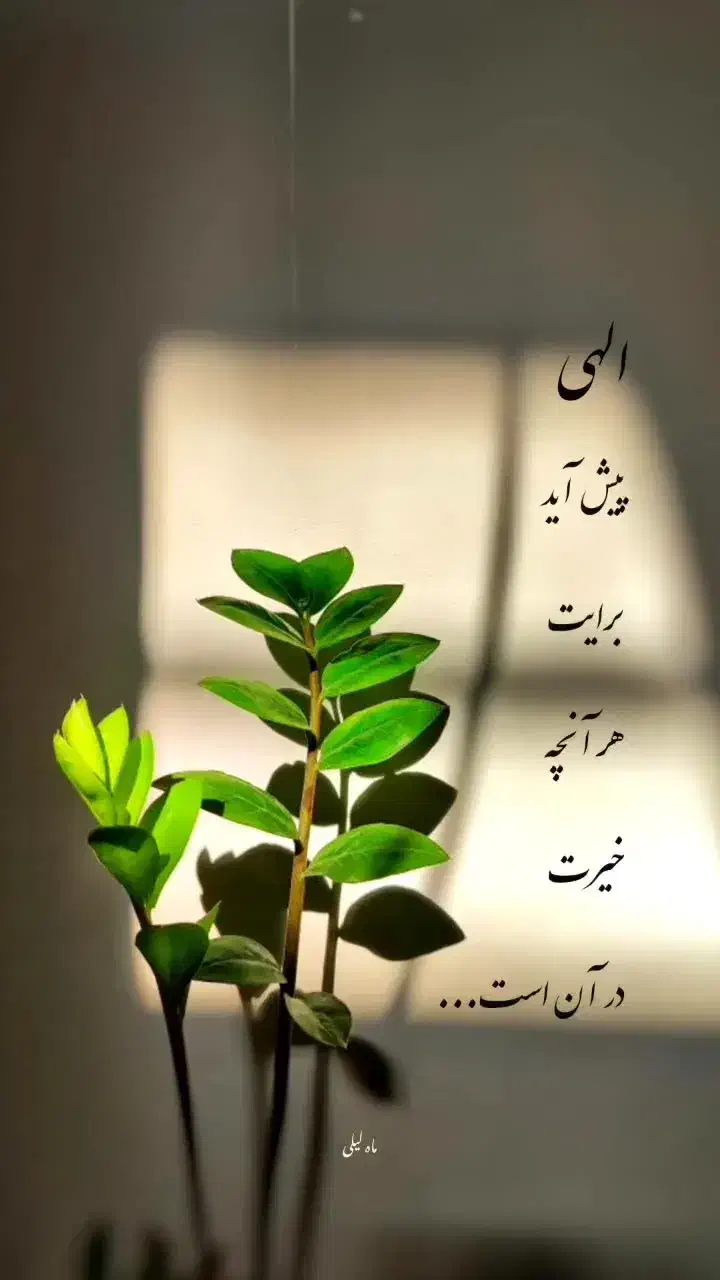 الهی
پیش آید
برایت
هر آنچه
خیرت
در آن است...
ماه لیلی